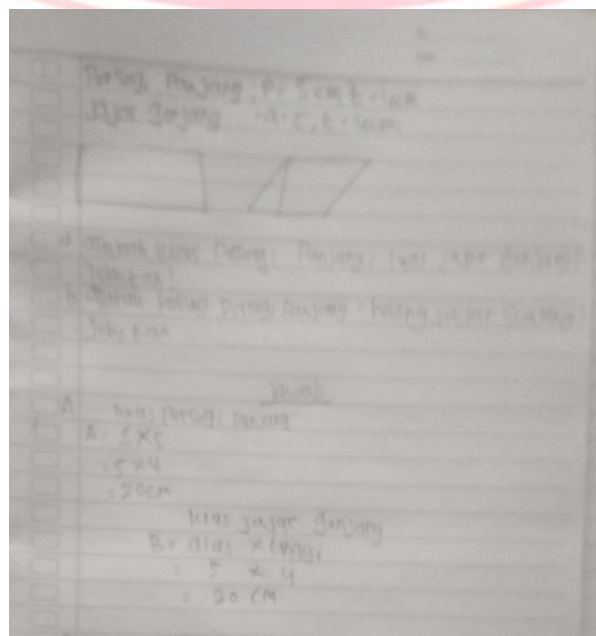 Persegi Panjang, P = 5 cm t = 4cm
Jajar Genjang a = 5, t = 4cm
a apakah luas Persegi Panjang, luas jajar Genjang?
Jelaskan!
b Apakah keliling Persegi Panjang keliling jajar Genjang?
Jelaskan
Jawab
A luas Persegi Panjang
A =
= 5 x 4
= 20 cm
luas jajar Genjang
B = alas x tinggi
= 5 x 4
= 20 cm